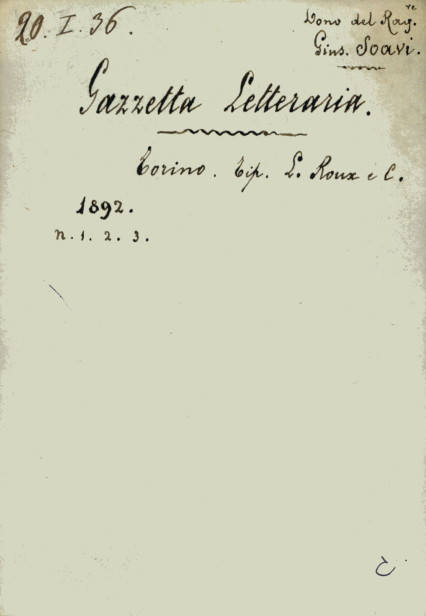 20. I. 36.
Dono del Rag.re
Gius. Soavi.
Gazzetta Letteraria.
Torino. Tip. L. Roux e C.
1892.
n. 1. 2. 3.